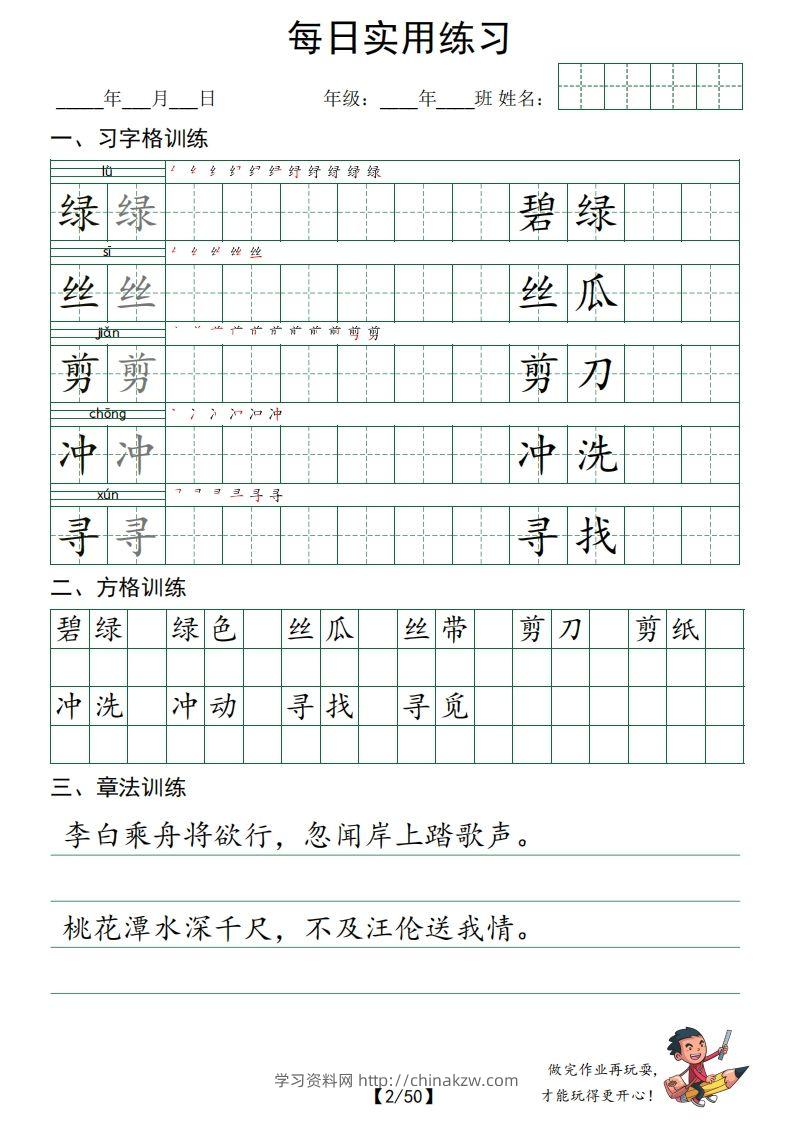 每日实用练习
_____年___月___日 年级：____年____班 姓名：
一、习字格训练
lǜ
绿 绿 碧 绿
sī
丝 丝 丝 瓜
jiǎn
剪 剪 剪 刀
chōng
冲 冲 冲 洗
xún
寻 寻 寻 找
二、方格训练
碧 绿 绿 色 丝 瓜 丝 带 剪 刀 剪 纸
冲 洗 冲 动 寻 找 寻 觅
三、章法训练
李白乘舟将欲行，忽闻岸上踏歌声。
桃花潭水深千尺，不及汪伦送我情。
做完作业再玩耍，
才能玩得更开心！
学习资料网 http://chinakzw.com
【2/50】